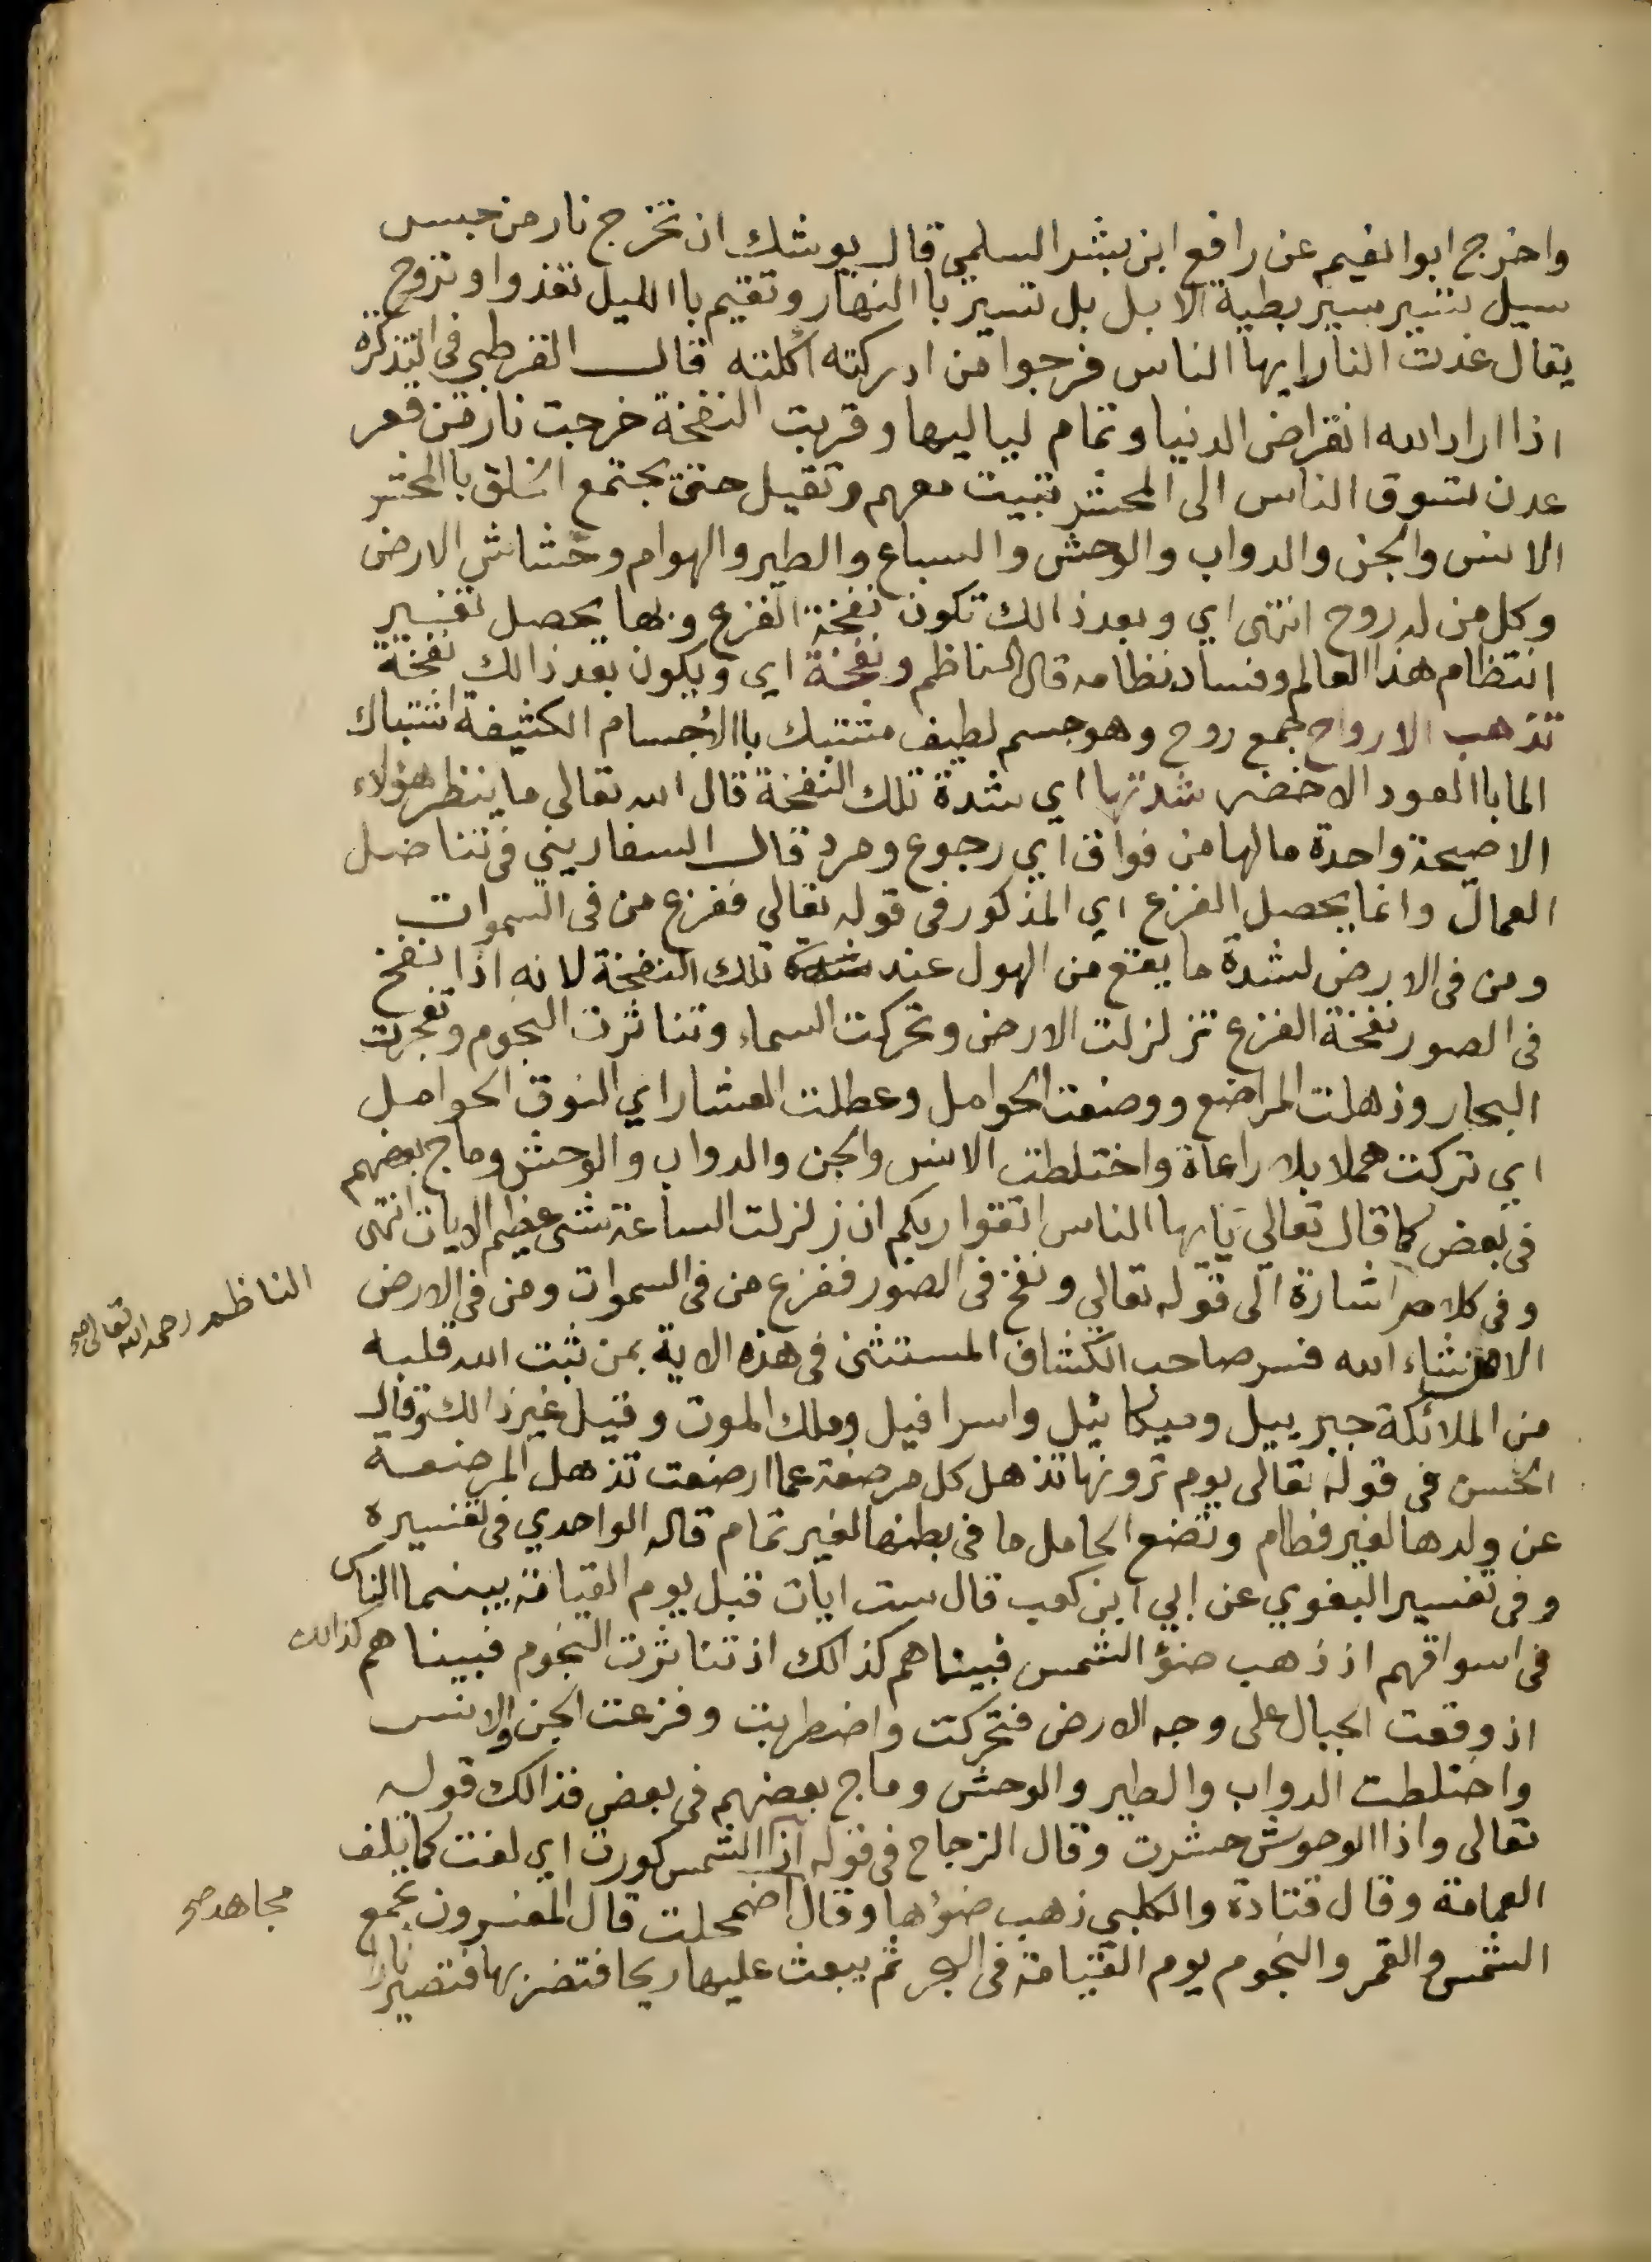 واخرج ابوا نعيم عن رافع ابن بشر السلمي قال يوشك ان تخرج نار من حبس
سيل تسير سير بطية الابل بل تسير باالنهار وتقيم باالليل تغذوا وتروح
يقال غدت النار ايها الناس فرجوا من ادركته اكلته قال القرطبي في التذكره
اذا اراد الله انقراض الدنيا وتمام لياليها وقربت النفخة خرجت نار من قعر
عدن تسوق الناس الى المحشر تبيت معهم وتقيل حتى يجتمع الخلق باالمحشر
الانس والجن والدواب والوحش والسباع والطير والهوام وخشاش الارض
وكل من له روح انتهى اي وبعد ذالك تكون نفخة الفزع وبها يحصل تغيير
انتظام هذا العالم وفساد نظامه قال الناظم ونفخة اي ويكون بعد ذالك نفخة
تذهب الارواح جمع روح وهو جسم لطيف مشتبك باالأجسام الكثيفة اشتباك
الما باالعود الاخضر شدتها اي شدة تلك النفخة قال الله تعالى ما ينظر هؤلاء
الا صيحة واحدة ما لها من فواق اي رجوع ومرد قال السفاريني في تناضل
العمال وانما يحصل الفزع اي المذكور في قوله تعالى ففزع من في السموات
ومن في الارض لشدة ما يقع من الهول عند شدة تلك النفخة لانه اذا نفخ
في الصور نفخة الفزع تزلزلت الارض وتحركت السماء وتناثرت النجوم وتفجرت
البحار وذهلت المراضع ووضعت الحوامل وعطلت العشار اي النوق الحوامل
اي تركت هملا بلا راعاة واختلطت الانس والجن والدواب والوحش وماج بعضهم
في بعض كما قال تعالى يايها الناس اتقوا ربكم ان زلزلت الساعة شئ عظيم الايات انتهى
وفي كلام اشارة الى قوله تعالى ونفخ في الصور ففزع من في السموات ومن في الارض
الناظم رحمه الله تعالى صح
الا من شاء الله فسر صاحب الكشاف المستثنى في هذه الاية بمن ثبت الله قلبه
من الملائكة جبرييل وميكائيل واسرافيل وملك الموت وقيل غير ذالك وقال
الحسن في قوله تعالى يوم ترونها تذهل كل مرضعة عما ارضعت تذهل المرضعة
عن ولدها لغير فطام وتضع الحامل ما في بطنها لغير تمام قاله الواحدي في تفسيره
وفي تفسير البغوي عن ابي ابن كعب قال ست ايات قبل يوم القيامة بينما الناس
في اسواقهم اذ ذهب ضؤ الشمس فبينما هم كذالك اذ تناثرت النجوم فبينا هم كذالك
اذ وقعت الجبال على وجه الارض فتحركت واضطربت وفزعت الجن والانس
واختلطت الدواب والطير والوحش وماج بعضهم في بعض فذالك قوله
تعالى واذا الوحوش حشرت وقال الزجاج في قوله اذا الشمس كورت اي لفت كما تلف
العمامة وقال قتادة والكلبي ذهب ضوؤها وقال اضمحلت قال المفسرون يجمع
مجاهد صح
الشمس والقمر والنجوم يوم القيامة في البحر ثم يبعث عليها ريحا فتضربها فتصير نارا